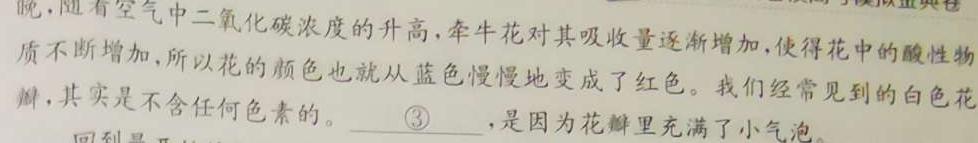 晚，随着空气中二氧化碳浓度的升高，牵牛花对其吸收量逐渐增加，使得花中的酸性物
质不断增加，所以花的颜色也就从蓝色慢慢地变成了红色。我们经常见到的白色花
瓣，其实是不含任何色素的。 ③ ，是因为花瓣里充满了小气泡。